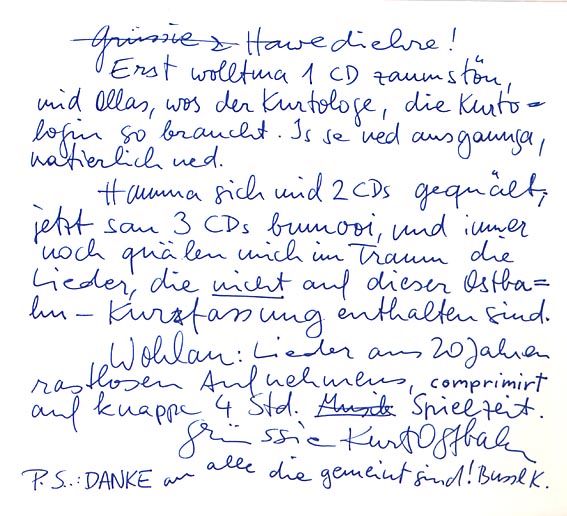 Grüssie Hawediehre!
Erst wolltma 1 CD zaumstön,
mid Ollas, wos der Kurtologe, die Kurto=
login so braucht. Is se ned ausgaunga,
natierlich ned.
Hamma sich mid 2 CDs gequält,
jetzt san 3 CDs und immer
noch quälen mich im Traum die
Lieder, die nicht auf dieser Ostba=
hn - Kurzfassung enthalten sind.
Wohlan: Lieder aus 20 Jahren
rastlosen Aufnehmens, comprimirt
auf knappe 4 Std. Musik Spielzeit.
Grüssie Kurt Ostbahn
P.S.: DANKE an alle die gemeint sind! Bussl K.